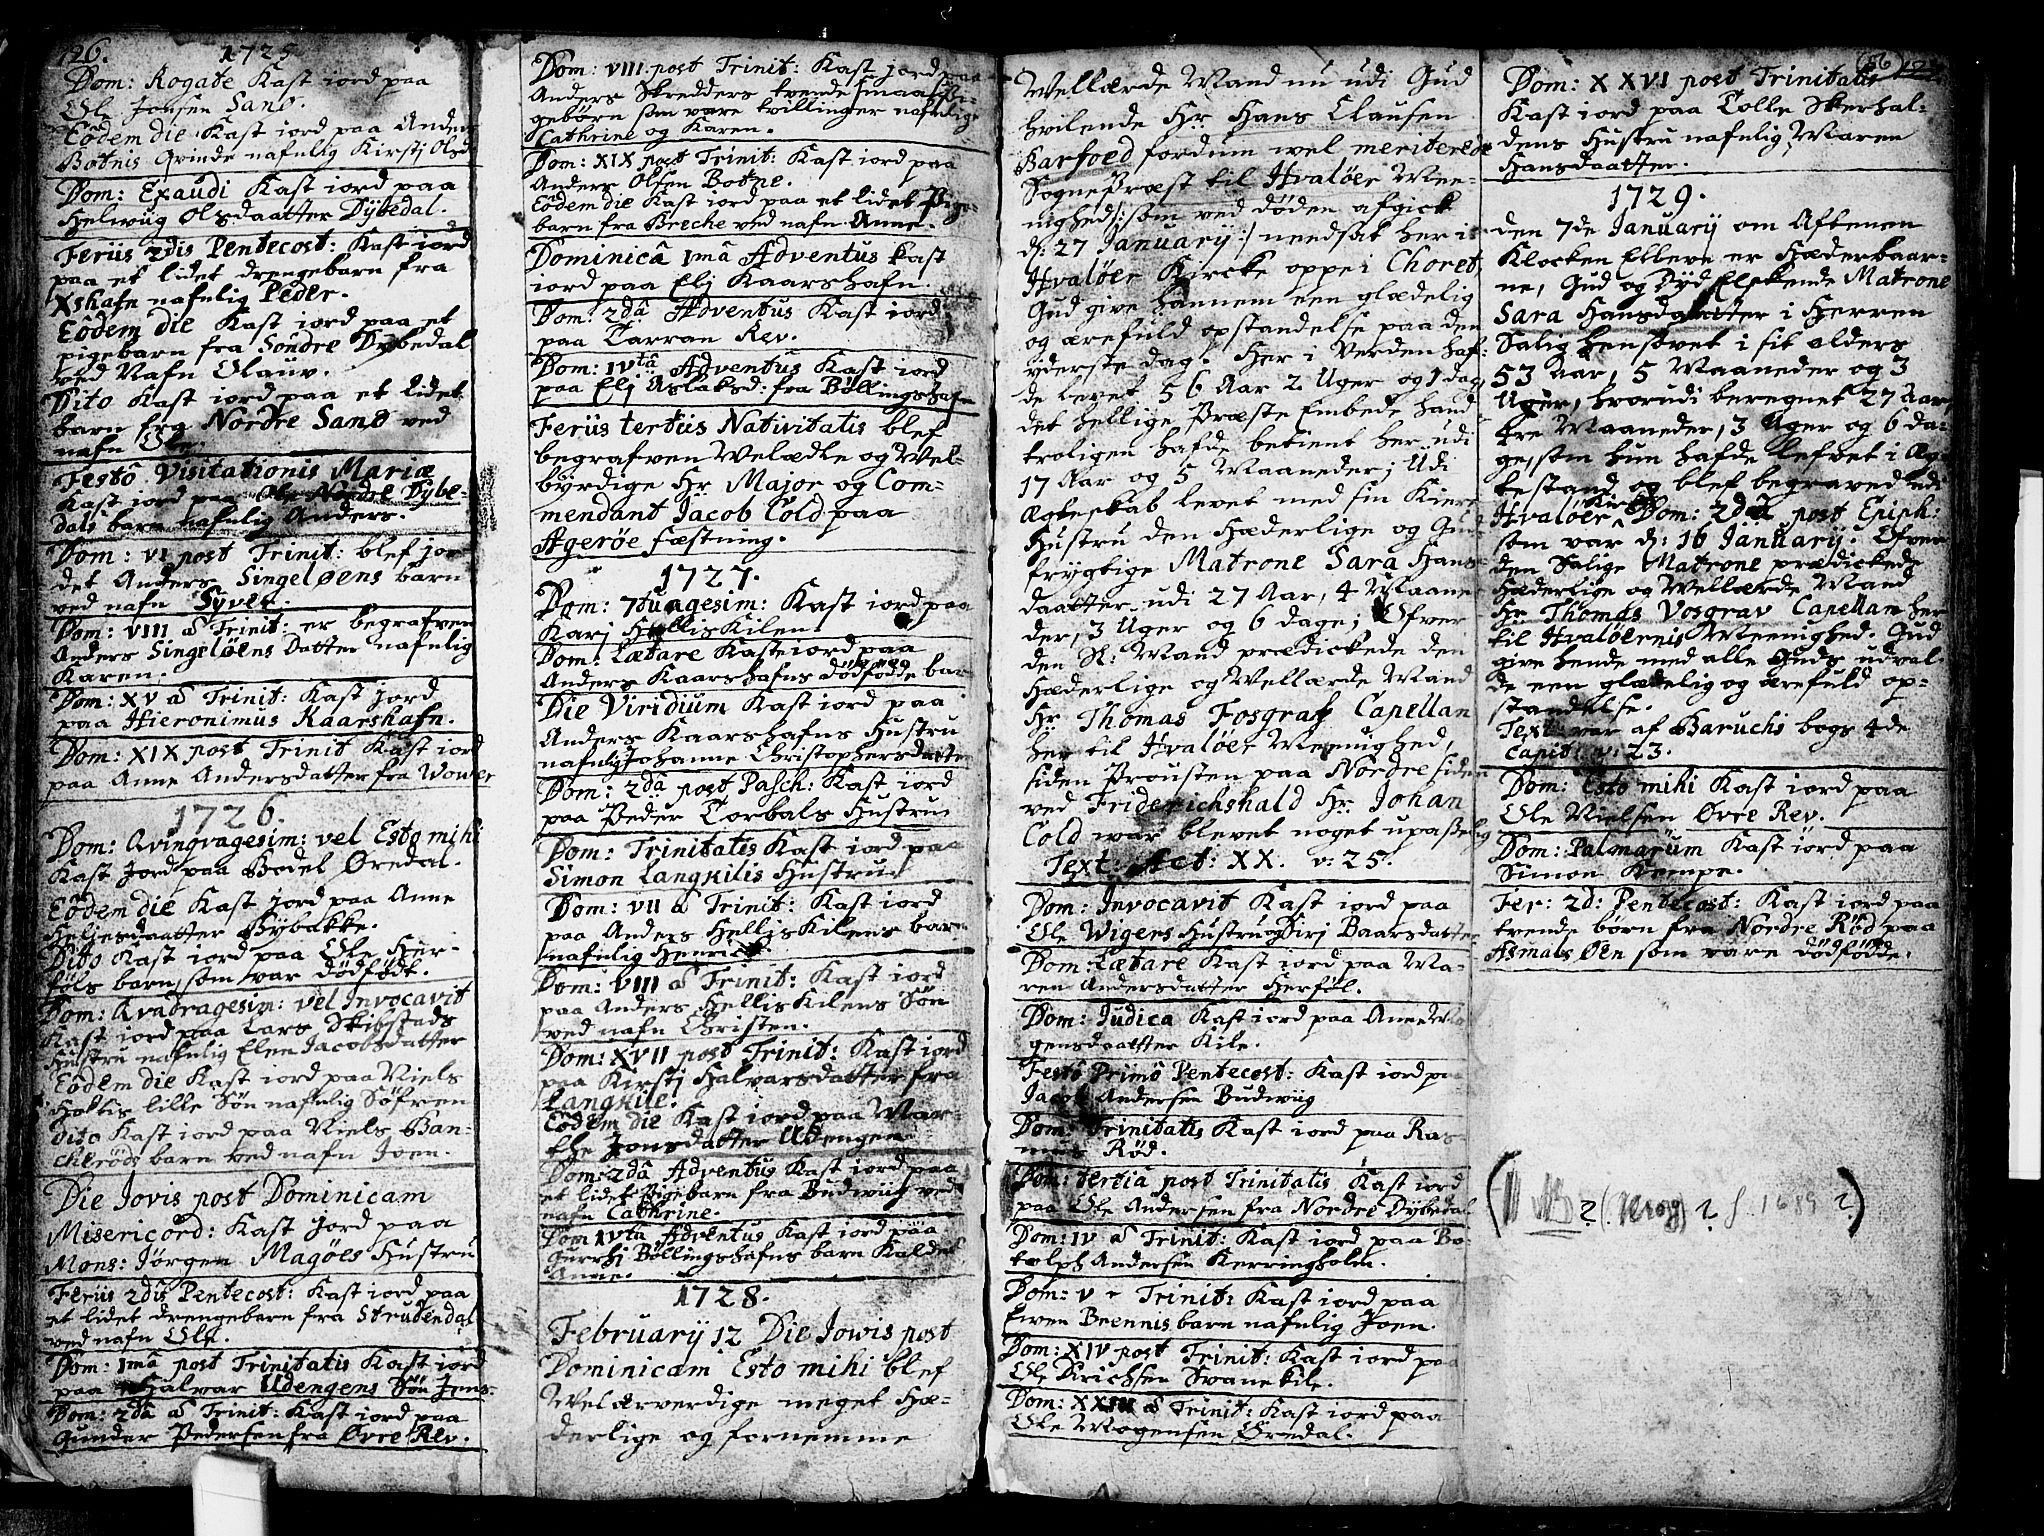 126. 1725
Dom: Rogate Kast iord paa
Ole Jonsen Sand.
Eôdem die Kast iord paa Anders
Botnis Qvinde nafnlig Kirstj Olsd
Dom: Exaudi Kast iord paa
Helwug Olsdaatter Dybedal.
Feriis 2dis Pentecost: Kast iord
paa et lidet drengebarn fra
nafnlig Peder.
Eôdem die Kast iord paa et
pigebarn fra Sondre Dybedal
ved Nafn Olauv.
Dito Kast iord paa et lidet
barn fra Nordre Sand ved
nafn Ole.
Festô Visitationis Mariæ
Kast iord paa Ole Nordre Dybe-
dals barn nafnlig Anders.
Dom: VI post Trinit: blef jor-
det Anders Singeløens barn
ved nafn Syver.
Dom: VIII â Trinit: er begrafven
Anders Singeløens Datter nafnlig
Karen.
Dom: XV â Trinit: Kast jord
paa Hieronimus Kaarshafn.
Dom: XIX post Trinit Kast iord
paa Anne Andersdatter fra Wower
1726.
Dom: Qvinqvagesim: vel Esto mihi
Kast Jord paa Bodel Øredal.
Eôdem die Kast jord paa Anne
Heljesdaatter Bybakke.
Dito Kast iord paa Ole Her-
føls barn, som war dödfödt.
Dom: Qvadragesim: vel Invocavit
Kast iord paa Lars Skibstads
Hustru nafnlig Elen Jacobsdatter
Eôdem die Kast iord paa Niels
Holtis lille Søn nafnlig Søfren
Dito Kast iord paa Niels Ban-
chlrøds barn ved nafn Joen.
Die Jovis post Dominicam
Misericord: Kast Jord paa
Mons: Jørgen Magøes Hustru
Feriis 2dis Pentecost: Kast iord paa
et lidet drengebarn fra Strudendal
ved nafn Ole.
Dom: 1mâ post Trinitatis Kast iord
paa Hjalvar Udengens Søn Jens.
Dom: 2dâ â Trinit: Kast iord paa
Gunder Pedersen fra Øvre Rev.
Dom: VIII post Trinit: Kast jord paa
Anders Skredders tvende smaa Pi-
gebørn som vare tvillinger nafnlig
Cathrine og Karen.
Dom: XIX post Trinit: Kast iord paa
Anders Olsen Botne.
Eôdem die Kast iord paa et lidet Pige-
barn fra Breche ved nafn Anne.
Dominicâ 1mâ Adventus Kast
iord paa Elj Kaarshafn.
Dom: 2dâ Adventus Kast iord
paa Tarran Rev.
Dom: IVtâ Adventus Kast iord
paa Elj Aslaksd: fra Bøllingshafn
Feriis tertiis Nativitatis blef
begrafven Welædle og Wel-
byrdige Hr Major og Com-
mendant Jacob Cold paa
Agerøe Fæstning.
1727.
Dom: 7tuagesim: Kast iord paa
Karj HellisKilen.
Dom: Lætare Kast iord paa
Anders Kaarshafns dödfödde barn
Die Viridium Kast iord paa
Anders Kaarshafns Hustru
nafnlig Johanne Christophersdatter
Dom: 2dâ post Pasch: Kast iord
paa Peder Torbals Hustru
Dom: Trinitatis Kast iord paa
Simon Langkilis Hustru
Dom: VII â Trinit: Kast iord
paa Anders HellisKilens barn
nafnlig Henrick.
Dom: VIII â Trinit: Kast iord
paa Anders HellisKilens Søn
ved nafn Christen.
Dom: XVII post Trinit: Kast iord
paa Kirstj Halvarsdatter fra
Langkile.
Eôdem die Kast iord paa Mar-
the Jonsdatter Udengen
Dom: 2dâ Adventus Kast iord paa
et lidet Pigebarn fra Budwiig ved
nafn Cathrine.
Dom IVta Adventus Kast iord paa
Gurrhj Bøllingshafns barn Kaldet
Anne.
1728.
Februarij 12 Die Jowis post
Dominicam Esto mihi blef
Welærværdige meget Hæ-
derlige og fornemme
Wellærde Mand nu udi Gud
hvilende Hr Hans Clausen
Barfoed fordum wel meriterede
SognePræst til Hvaløer Mee-
nighed /: som ved døden afgick
d: 27 Januarij :/ needsat her i
Hvaløer Kircke oppe i Choret,
Gud give hannem een glædelig
og ærefuld opstandelse paa den
yderste dag. Her i Verden haf-
de levet 56 Aar 2 Uger og 1 dag
det hellige Præste Embede hand
troligen hafde betient her udi
17 Aar og 5 Maaneder; Udi
Ægteskab levet med sin Kiere
Hustru den Hæderlige og Gud-
frygtige Matrone Sara Hans-
daatter udi 27 Aar, 4 Maane-
der, 3 Uger og 6 dage; Ofver
den Sl: Mand prædickede den
Hæderlige og Wellærde Mand
Hr Thomas Fosgraf Capellan
her til Hvaløer Meenighed,
siden Prousten paa Nordre siden
ved Friderichshald Hr Johan
Cold war blevet noget upaßelig
Text: Act: XX. v: 25.
Dom: Invocavit Kast iord paa
Ole Wigens Hustru Sirj Baarsdatter
Dom: Lætare Kast iord paa Ma-
ren Andersdatter Herføl.
Dom: Judica Kast iord paa Anne Mo-
gensdaatter Kile.
Festô Primô Pentecost: Kast iord paa
Jacob Andersen Budwiig
Dom: Trinitatis Kast iord paa Ras-
mus Rød.
Dom: tertiâ post Trinitatis Kast iord
paa Ole Andersen fra Nordre Dybedal
Dom: IV â Trinit: Kast iord paa Bo-
tolph Andersen Kerringholm.
Dom: V â Trinit: Kast iord paa
Ewen Brennis barn nafnlig Joen.
Dom: XIV post Trinit: Kast iord paa
Ole Dirichsen Svanekile.
Dom: XXIII â Trinit: Kast iord paa
Ole Mogensen Øredal.
(56)
Dom: XXVI post Trinitatis
Kast iord paa Tolle Skerhal-
dens Hustru nafnlig Maren
Hansdaatter.
1729.
den 7de Januarij om Aftenen
Klocken Elleve er Hæderbaar-
ne, Gud og Dyd Elskende Matrone
Sara Hansdaatter i Herren
Salig hensovet i sit alders
53 Aar, 5 Maaneder og 3
Uger, hvorudi beregnet 27 Aar
tre Maaneder, 3 Uger og 6 da-
ge, som hun hafde lefvet i Æg-
testand og blef begraved udi
Hvaløer Kirke Dom: 2dâ post Epiph:
som var d: 16 Januarij. Ofver
den Salige Matrone prædickede
Hæderlige og Wellærde Mand
Hr Thomas Vosgrav Capellan her
til Hvaløernis Meenighed. Gud
give hende med alle Guds udval-
de een glædelig og ærefuld op-
standelse.
Text: var af Baruchi bogs 4de
Capit: v: 23.
Dom: Esto mihi Kast iord paa
Ole Nielsen Øvre Rev.
Dom: Palmarum Kast iord paa
Simon Kempe.
Fer: 2d: Pentecost: Kast iord paa
tvende børn fra Nordre Rød paa
Asmals Øen som vare dödfödde.
? (Krog) ? f. 1689 ?)